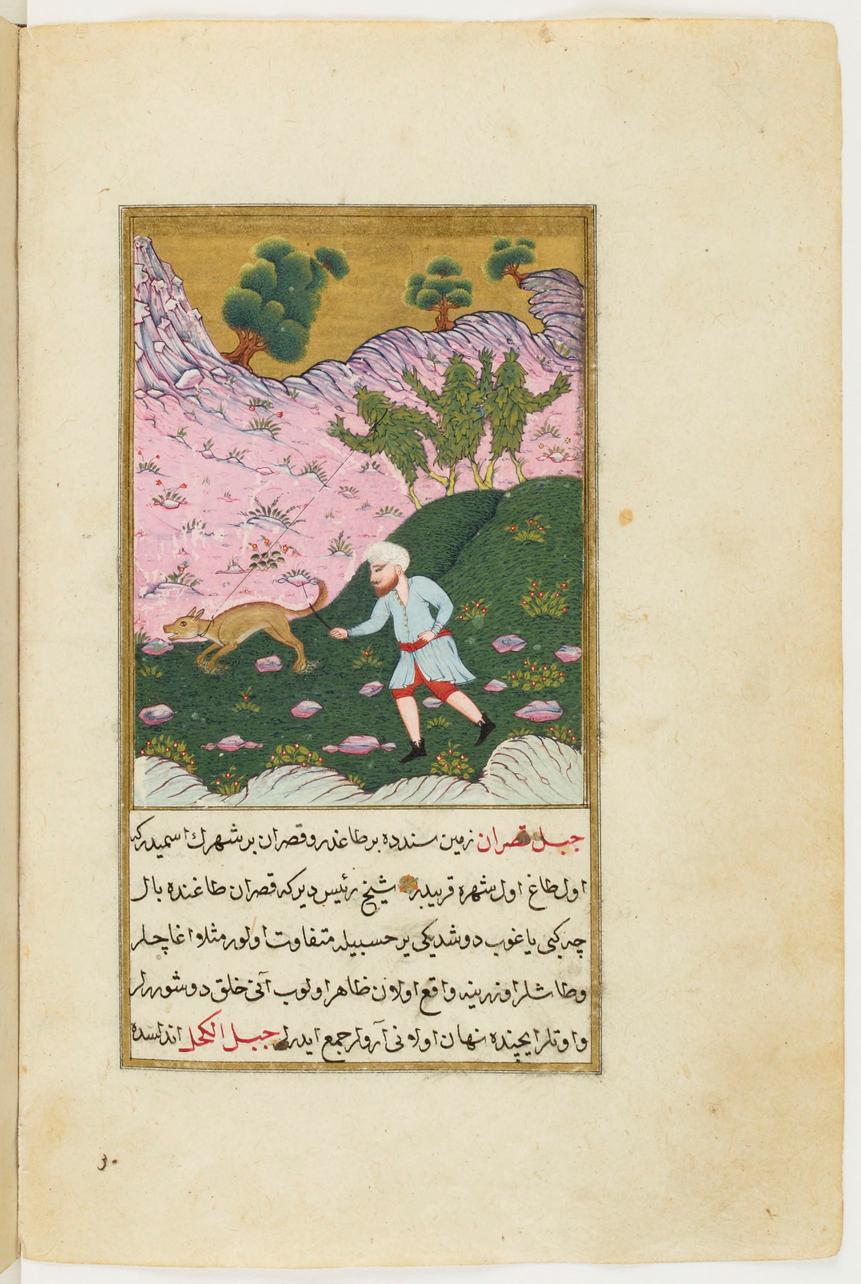 جبل قصران زمین سندده بر طاغدر و قصران بر شهرك اسمیدر که
اول طاغ اول شهره قریبدر شیخ رئیس دیر که قصران طاغنده بال
چه کبی یاغوب دوشدیکی یر حسبیله متفاوت اولور مثلا اغاچلر
وطاشلر اوزرینه واقع اولان ظاهر اولوب آنی خلق دوشوررلر
واوتلر ایچنده نهان اولانی آرولر جمع ایدرلر جبل الکحل اندلسده